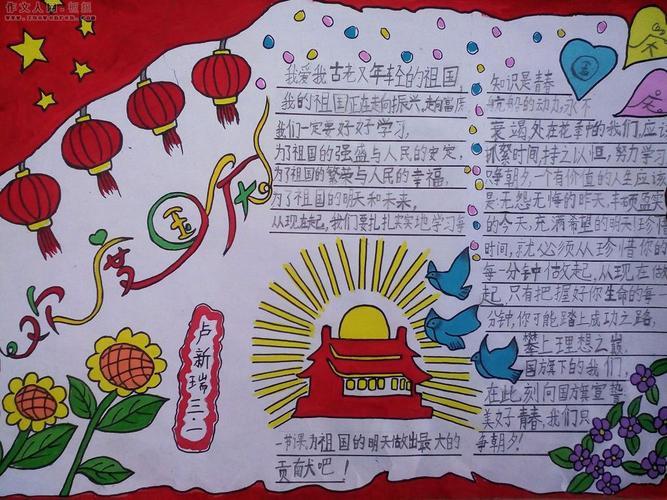 作文人网
欢度国庆
卢新瑞 三
我爱我古老又年轻的祖国,
我的祖国正在走向振兴,走向富庶
我们一定要好好学习,
为了祖国的强盛与人民的安定,
为了祖国的繁荣与人民的幸福,
为了祖国的明天和未来,
从现在起,我们要扎扎实实地学习每
一节课,为祖国的明天做出最大的
贡献吧!
知识是青春
航船的动力,永不
衰竭,处在花季的我们,应
抓紧时间,持之以恒,努力学习
争朝夕一个有价值的人生应该
是:无怨无悔的昨天,丰硕盈实
的今天,充满希望的明天!珍惜
时间,就必须从珍惜你的
每一分钟做起,从现在做
起,只有把握好你生命的每一
分钟,你可能踏上成功之路,
攀上理想之巅
国旗下的我们,
在此刻向国旗宣誓
美好青春,我们只
争朝夕!